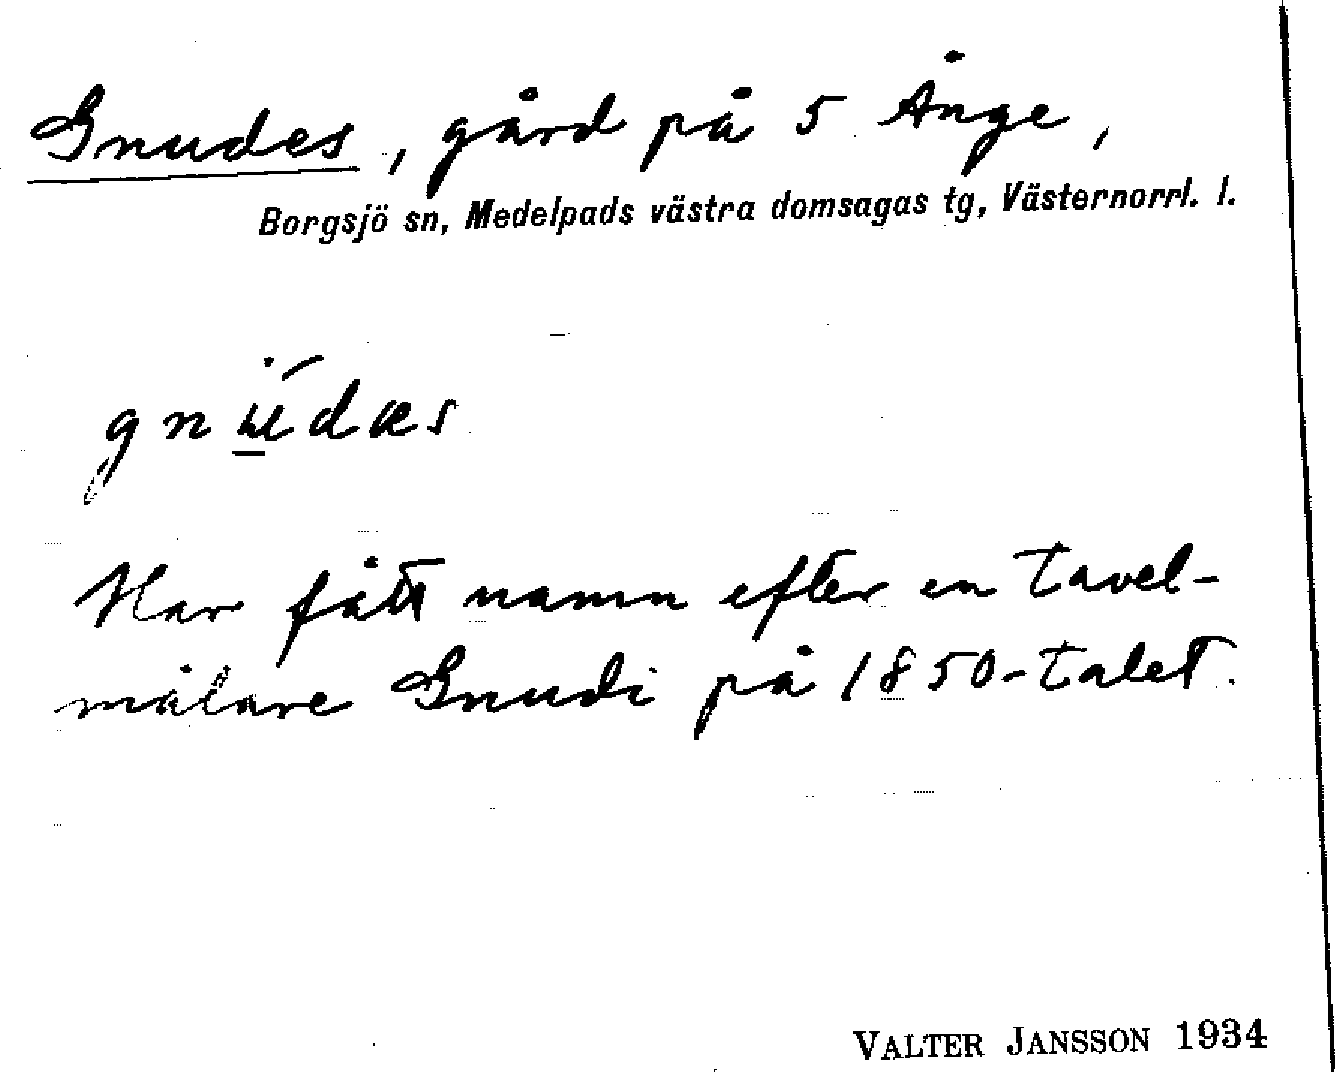 Gnudes, gård på 5 Ånge,
Borgsjö sn, Medelpads västra domsagas tg, Västernorrl. l.
Har fått namn efter en tavel-
målare Gnudi på 1850-talet.
VALTER JANSSON 1934